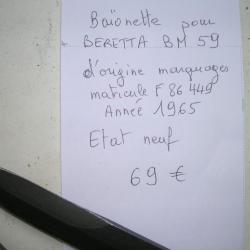 Baïonette pour
BERETTA BM 59
d'origine marquages
matricule F 86 449
Année 1965
Etat neuf
69 €